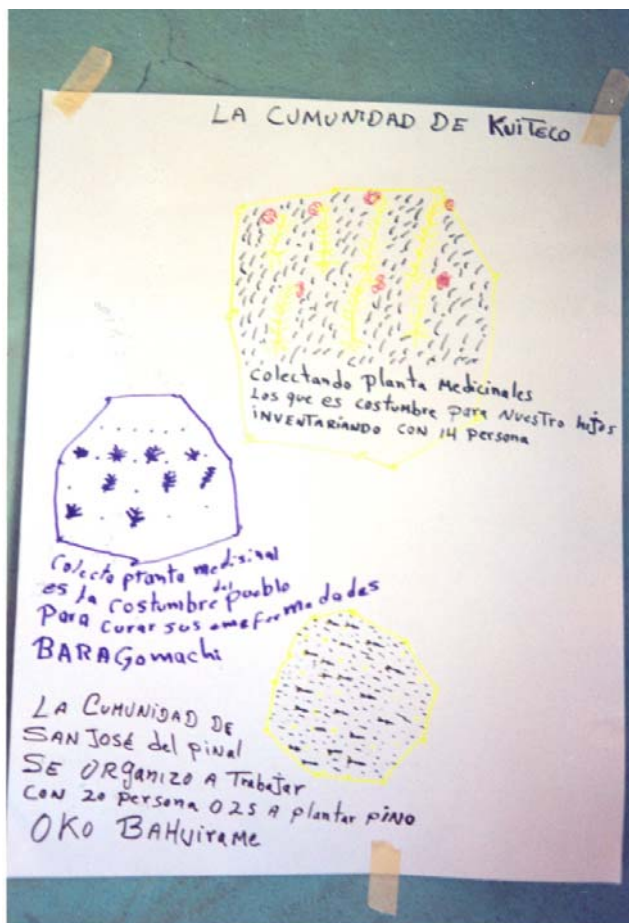 LA CUMUNIDAD DE KUITECO
Colectando planta Medicinales
Los que es costumbre para Nuestro hijos
INVENTARIANDO CON 14 persona
Colecto planta medisinal
es la costumbre del pueblo
Para curar sus emefermedades
BARAGomachi
LA CUMUNIDAD DE
SAN JOSÉ del pinal
SE ORGANIZO A Trabajar
CON 20 persona O 25 A plantar piNO
OKO BAHuiraMe